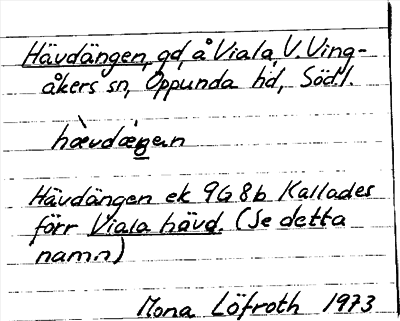 Hävdängen, gd, å Viala, V. Ving-
åkers sn, Oppunda hd, Södl.
hævdæŋen
Hävdängen ek 9G8b Kallades
förr Viala hävd. (Se detta
namn)
Mona Löfroth 1973